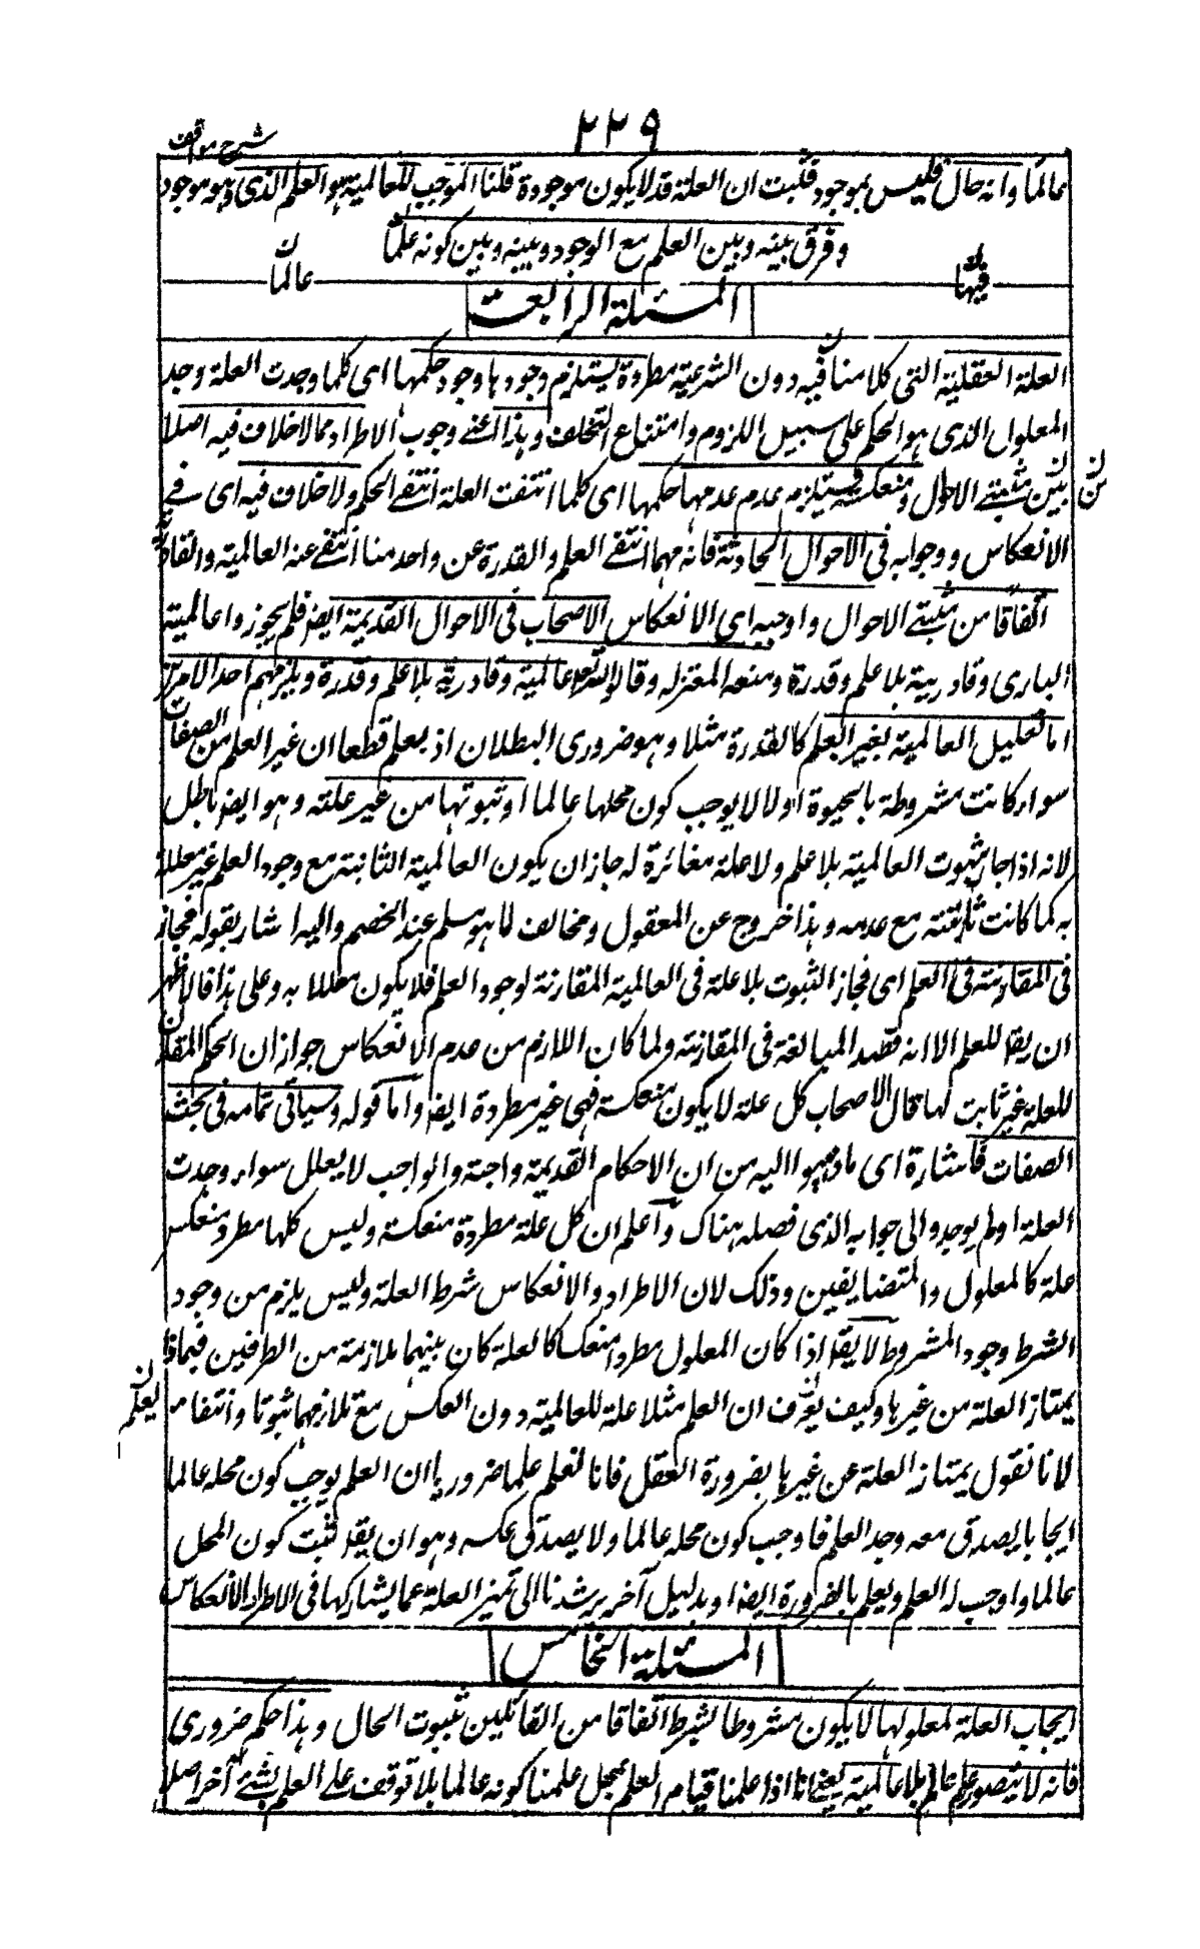 ٢٢٩
شرح مواقف
عالما وانه حال فليس بموجود فثبت ان العلة قد لا يكون موجودة قلنا الموجب للعالمية هو العلم الذى هو موجود
وفرق بينه وبين العلم مع الوجود وبينه وبين كونه علما
فيها ن
عالما ن
المسئلة الرابعة
العلة العقلية التى كلامنا فيه دون الشرعية مطردة يستلزم وجودها وجود حكمها اى كلما وجدت العلة وجد
المعلول الذى هو الحكم على سبيل اللزوم وامتناع التخلف وهذا اعنے وجوب الاطراد مما لا خلاف فيه اصلا
بين مثبتے الاحوال ومنعكسة فيستلزم عدم عدمها حكمها اى كلما انتفت العلة انتفے الحكم ولا خلاف فيه اى فے
الانعكاس ووجوبه فى الاحوال الحادثة فانه مهما انتفے العلم والقدرة عن واحد منا انتفے عنه العالمية والقادرية
اتفاقا من مثبتے الاحوال واوجبه اى الانعكاس الاصحاب فى الاحوال القديمة ايضا فلم يجوزوا عالمية
البارى وقادريية بلا علم وقدرة ومنعه المعتزله وقالوا لله تعالى عالمية وقادرية بلا علم وقدرة ويلزمهم احد الامرين
اما تعليل العالمية بغير العلم كالقدرة مثلا وهو ضرورى البطلان اذ يعلم قطعا ان غير العلم من الصفات
سواء كانت مشروطة بالحيوة اولا لا يوجب كون محلها عالما او ثبوتها من غير علته وهو ايضا باطل
لانه اذا جاز ثبوت العالمية بلا علم ولا علة مغائرة له جاز ان يكون العالمية الثابتة مع وجود العلم غير معللة
به كما كانت ثابتة مع عدمه وهذا خروج عن المعقول ومخالف لما هو مسلم عند الخصم واليه اشار بقوله فجاز
فى المقارنة فى العلم اى فجاز الثبوت بلا علة فى العالمية المقارنة لوجود العلم فلا يكون معللا به وعلى هذا فالاظهر
ان يقا للعلم الا انه قصد المبالغة فى المقارنة ولما كان اللازم من عدم الانعكاس جواز ان الحكم المقارن
للعلة غير ثابت لها قال الاصحاب كل علة لا يكون منعكسة فهى غير مطردة ايضا واما قوله وسيأتى تمامه فى بحث
الصفات فاشارة اى ما ذهبوا اليه من ان الاحكام القديمة واجبة والواجب لا يعلل سواء وجدت
العلة او لم يوجد والى جوابه الذى فصله هناك واعلم ان كل علة مطردة منعكسة وليس كلها مطرد منعكس
علة كالمعلول والمتضايفين وذلك لان الاطراد والانعكاس شرط العلة وليس يلزم من وجود
الشرط وجود المشروط لا يقا اذا كان المعلول مطردا منعكسا كالعلة كان بينهما ملازمة من الطرفين فبماذا
يمتاز العلة من غيرها وكيف يعرف ان العلم مثلا علة للعالمية دون العكس مع تلازمهما ثبوتا وانتفاء
يعلم ن
لانا نقول يمتاز العلة عن غيرها بضرورة العقل فانا لنعلم علما ضروريا ان العلم يوجب كون محله عالما
ايجابا يصدق معه وجد العلم فاوجب كون محله عالما ولا يصدق عكسه وهو ان يقا ثبت كون المحل
عالما واوجب له العلم ويعلم بالضرورة ايضا او بدليل آخر يرشدنا الى تميز العلة عما يشاركها فى الاطراد والانعكاس
المسئلة الخامس
ايجاب العلة لمعلولها لا يكون مشروطا بشرط اتفاقا من القائلين بثبوت الحال وهذا حكم ضرورى
فانه لا يتصور علم عالم بلا عالمية يعنے انا اذا علمنا قيام العلم بمحل علمنا كونه عالما بلا توقف علے العلم بشئے آخر اصلا